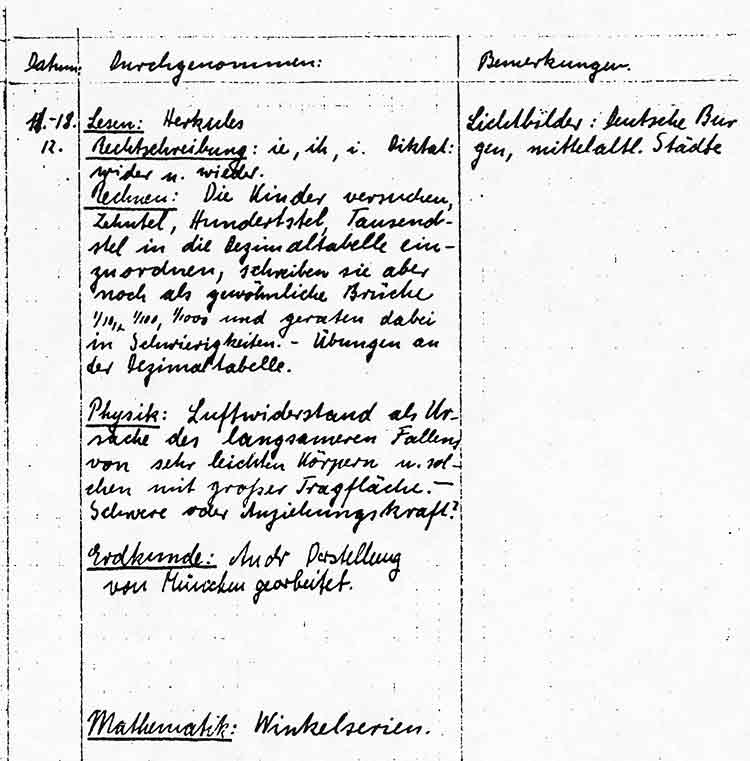 Datum: Durchgenommen: Bemerkungen.
11.-18. Lesen: Herkules Lichtbilder: Deutsche Bur-
12. Rechtschreibung: ie, ih, i. Diktat: gen, mittelaltl. Städte
wider u. wieder.
Rechnen: Die Kinder versuchen,
Zehntel, Hundertstel, Tausend-
stel in die Dezimaltabelle ein-
zuordnen, schreiben sie aber
noch als gewöhnliche Brüche
1/10, 1/100, 1/1000 und geraten dabei
in Schwierigkeiten. - Übungen an
der Dezimaltabelle.
Physik: Luftwiderstand als Ur-
sache des langsameren Fallens
von sehr leichten Körpern u. sol-
chen mit großer Tragfläche. -
Schwere oder Anziehungskraft?
Erdkunde: An dr Darstellung
von München gearbeitet.
Mathematik: Winkelserien.